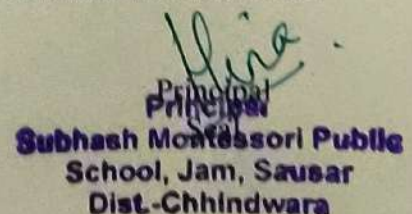 Principal
Principal
Subhash Montessori Public
School, Jam, Sausar
Dist.-Chhindwara